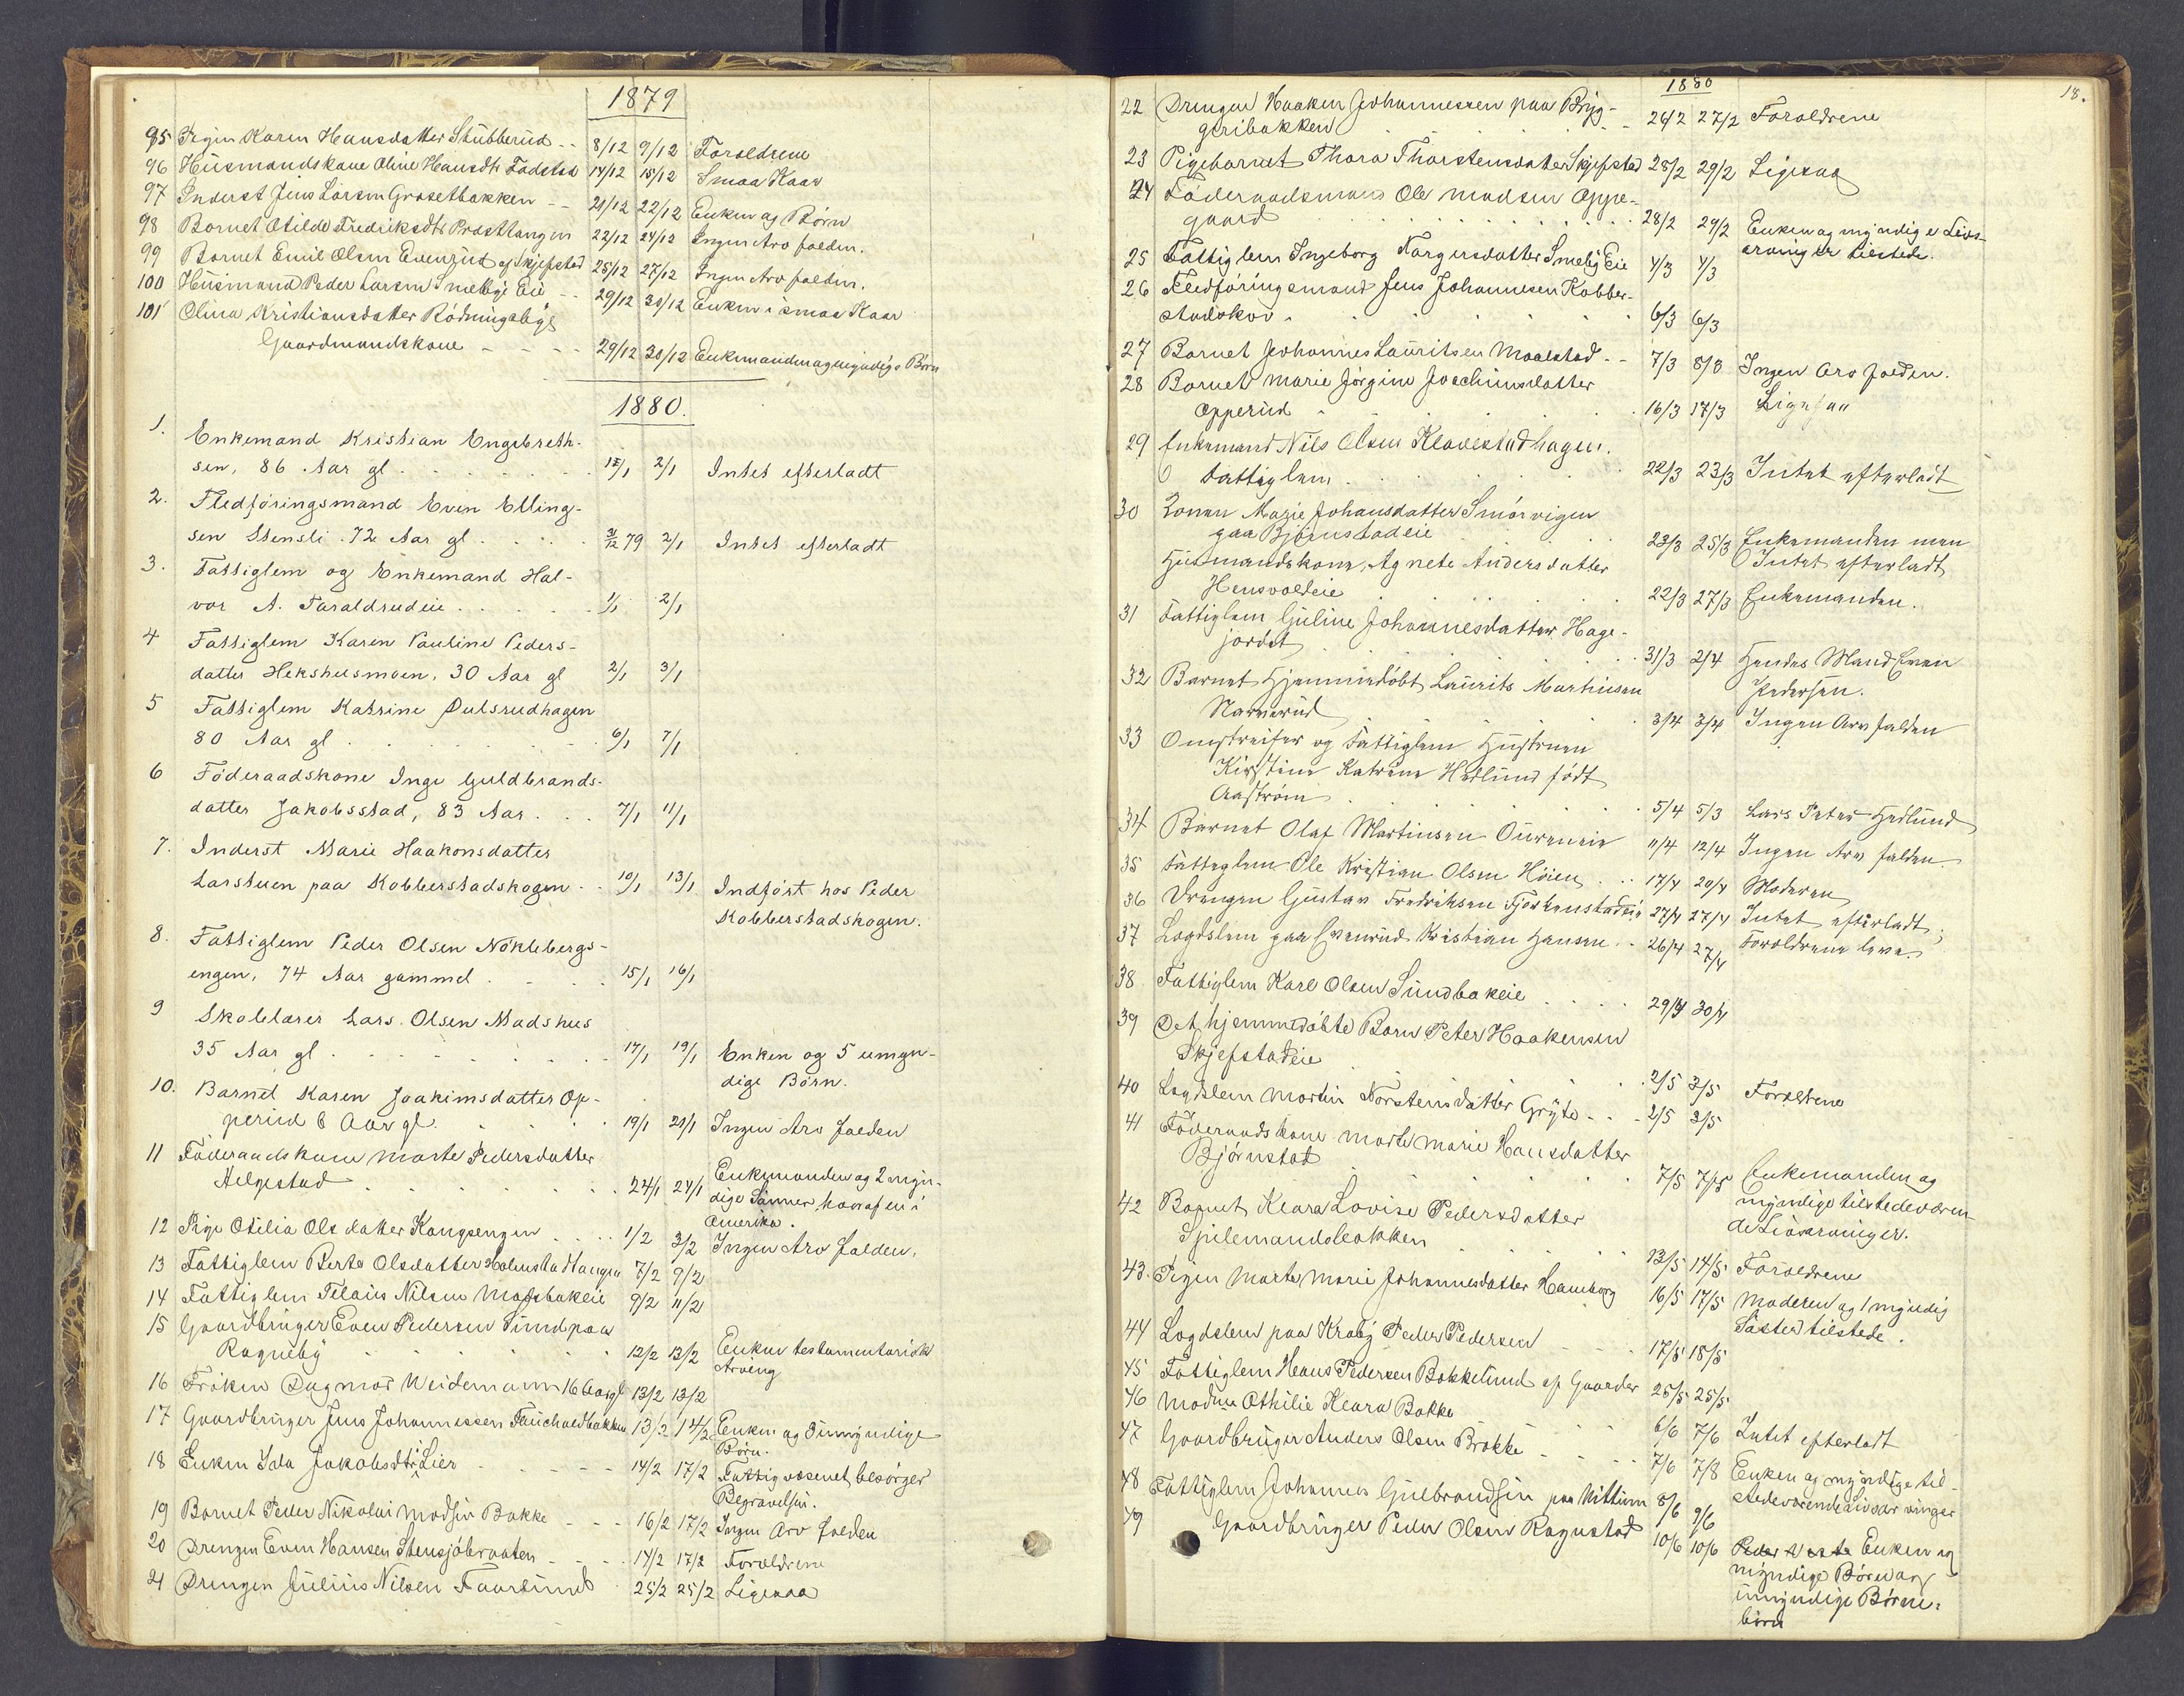 1879
95 Pigen Karen Hansdatter Stubberud - - 8/12 9/12 Forældrene
96 Husmandskone Oline Hansdtr Fodstad 14/12 15/12 Smaa Kaar
97 Inderst Jens Larsen Grøsetbakken - - 21/12 22/12 Enken og Børn
98 Barnet Otilde Fredriksdtr Præsttangen 22/12 24/12 Ingen Arv falden.
99 Barnet Emil Olsen Evenrud af Skjefstad 25/12 27/12 Ingen Arv falden.
100 Husmand Peder Larsen Smeby Eie - - 29/12 30/12 Enken i smaa Kaar
101 Olina Kristiansdatter Rødningsby
Gaardmandskone - - - - 29/12 30/12 Enkemanden og myndige Børn
1880.
1. Enkemand Kristian Engebreth-
sen, 86 Aar gl . . . . . . . /1 2/1 Intet efterladt
2. Fledføringsmand Even Elling-
sen Stensli. 72 Aar gl . . . . 31/12 79 2/1 Intet efterladt
3. Fattiglem og Enkemand Hal-
vor A. Taraldrudeie . . . . . 1/1 2/1
4 Fattiglem Karen Pauline Peders-
datter Hekshusmoen, 30 Aar gl 2/1 3/1
5 Fattiglem Katrine Dulsrudhagen
80 Aar gl . . . . . . . . 6/1 7/1
6 Föderaadskone Inge Guldbrands-
datter Jakobsstad, 83 Aar . . . 7/1 11/1
7. Inderst Marie Haakonsdatter
Larstuen paa Kobberstadskogen . . 10/1 13/1 Indført hos Peder
Kobberstadskogen.
8. Fattiglem Peder Olsen Nöklebergs-
engen, 74 Aar gammel . . . . 15/1 16/1
9 Skolelærer Lars Olsen Madshus
35 Aar gl . . . . . . . . 17/1 19/1 Enken og 5 umyn-
dige Börn.
10. Barnet Karen Joakimsdatter Op-
perud 6 Aar gl. . . . . . 19/1 21/1 Ingen Arv falden
11 Föderaadskone Marte Pedersdatter
Helgestad . . . . . . . . 24/1 24/1 Enkemanden og 2 myn-
dige Sönner hvoraf en i
Amerika.
12 Pige Otilia Olsdatter Kongsengen . . . . 1/2 3/2 Ingen Arv falden.
13 Fattiglem Berte Olsdatter Holmstadhaugen 7/2 9/2
14 Fattiglem Nilsen 9/2 11/2
15 Gaardbruger Even Pedersen Sund paa
Ragneby . . . . . . . . 12/2 13/2 Enken testamentarisk
Arving
16 Fröken Dagmar Weidemann 16 Aar gl 13/2 13/2
17 Gaardbruger Jens Johannessen Fauchaldbakken 13/2 14/2 Enken og 3 umyndige
Börn.
18 Enken Ida Jakobsdtr i Lier - - - - - 14/2 17/2 Fattigvæsenet besörger
Begravelsen.
19 Barnet Peder Nikolai Madsen Bakke - - - 16/2 17/2 Ingen Arv falden
20 Drengen Even Hansen Stensjöbraaten - - - 14/2 17/2 Forældrene
21 Drengen Julius Nilsen Faarlund 25/2 25/2 Ligesaa
18.
1880
22 Drengen Haaken Johannessen paa Bryg-
geribakken . . . . . - - 24/2 27/2 Forældrene
23 Pigebarnet Thora Thorstensdatter Skjefstad 28/2 29/2 Ligesaa
24 Föderaadsmand Ole Madsen Oppe-
gaard . . . . . . . . . . 28/2 29/2 Enken og myndige Livs-
arvinger tilstede.
25 Fattiglem Ingeborg Torgersdatter Smeby Eie 4/3 4/3
26 Fledføringsmand Jens Johannesen Kobber-
stadskov . . . . . . . . 6/3 6/3
27 Barnet Johannes Lauritsen Maalstad - - 7/3 8/3 Ingen Arv falden.
28 Barnet Marie Jörgine Joachimsdatter
Opperud . . . . . . . . 16/3 17/3 Ligesaa
29 Enkemand Nils Olsen Klavestadhagen.
Fattiglem . . . . . . . 22/3 23/3 Intet efterladt
30 Konen Marie Johansdatter Smörvigen
paa Björnstadeie . . . . . 23/3 25/3 Enkemanden men
Intet efterladt
Husmandskone, Agnete Andersdatter
Hensvoldeie . . . . . . . 22/3 27/3 Enkemanden.
31 Fattiglem Guline Johannesdatter Hage-
jordet . . . . . . . . 31/3 2/4 Hendes Mand Even
Pedersen.
32 Barnet Hjemmedøbt Laurits Martinsen
Narverud . . . . . . . . 3/4 3/4 Ingen Arv falden
33 Omstreifer og Fattiglem Hustruen
Kirstine Katrine Hedlund født
Aaström . . . . . . . . 5/4 5/3 Lars Peter Hedlund
34 Barnet Olaf Martinsen Oureneie 11/4 12/4 Ingen Arv falden
35 Fattiglem Ole Kristian Olsen Höien . . . 17/4 20/4 Moderen
36 Drengen Gustav Fredriksen Fjörkenstadeie 27/4 27/4 Intet efterladt;
37 Logdslem paa Evenrud Kristian Hansen . . 26/4 27/4 Forældrene leve.
38 Fattiglem Karl Olsen Sundbakeie . . . . 29/4 30/4
39 Det hjemmedöbte Barn Peter Haakensen
Skjefstadeie . . . . . . . 2/5 3/5 Forældrene
40 Logdslem Martin Torstensdatter Gryte - - - 2/5 3/5
41 Föderaadskone Marte Marie Hansdatter
Björnstad . . . . . . . . 7/5 7/5 Enkemanden og
myndige tilstedeværen-
de Livsarvinger.
42 Barnet Klara Lovise Pedersdatter
Spilemandsbakken . . . . . 13/5 14/5 Forældrene
43. Pigen Marte Marie Johannesdatter Hamborg 16/5 17/5 Moderen og 1 myndig
Söster tilstede.
44 Logdslem paa Kraby Peder Pedersen - - - 17/5 18/5
45 Fattiglem Hans Pedersen Bakkelund af Gaarder 25/5 25/5
46 Madme Othilie Klara Bakke . . . 6/6 7/6 Intet efterladt
47 Gaardbruger Anders Olsen Brokke - - - - 7/6 7/8 Enken og myndige til-
stedeværende Livsarvinger
48 Fattiglem Johannes Gulbrandsen paa Nittium 8/6 9/6
49 Gaardbruger Peder Olsen Rognstad 10/6 10/6 Enken og
myndige Börn og
umyndige Börne-
börn